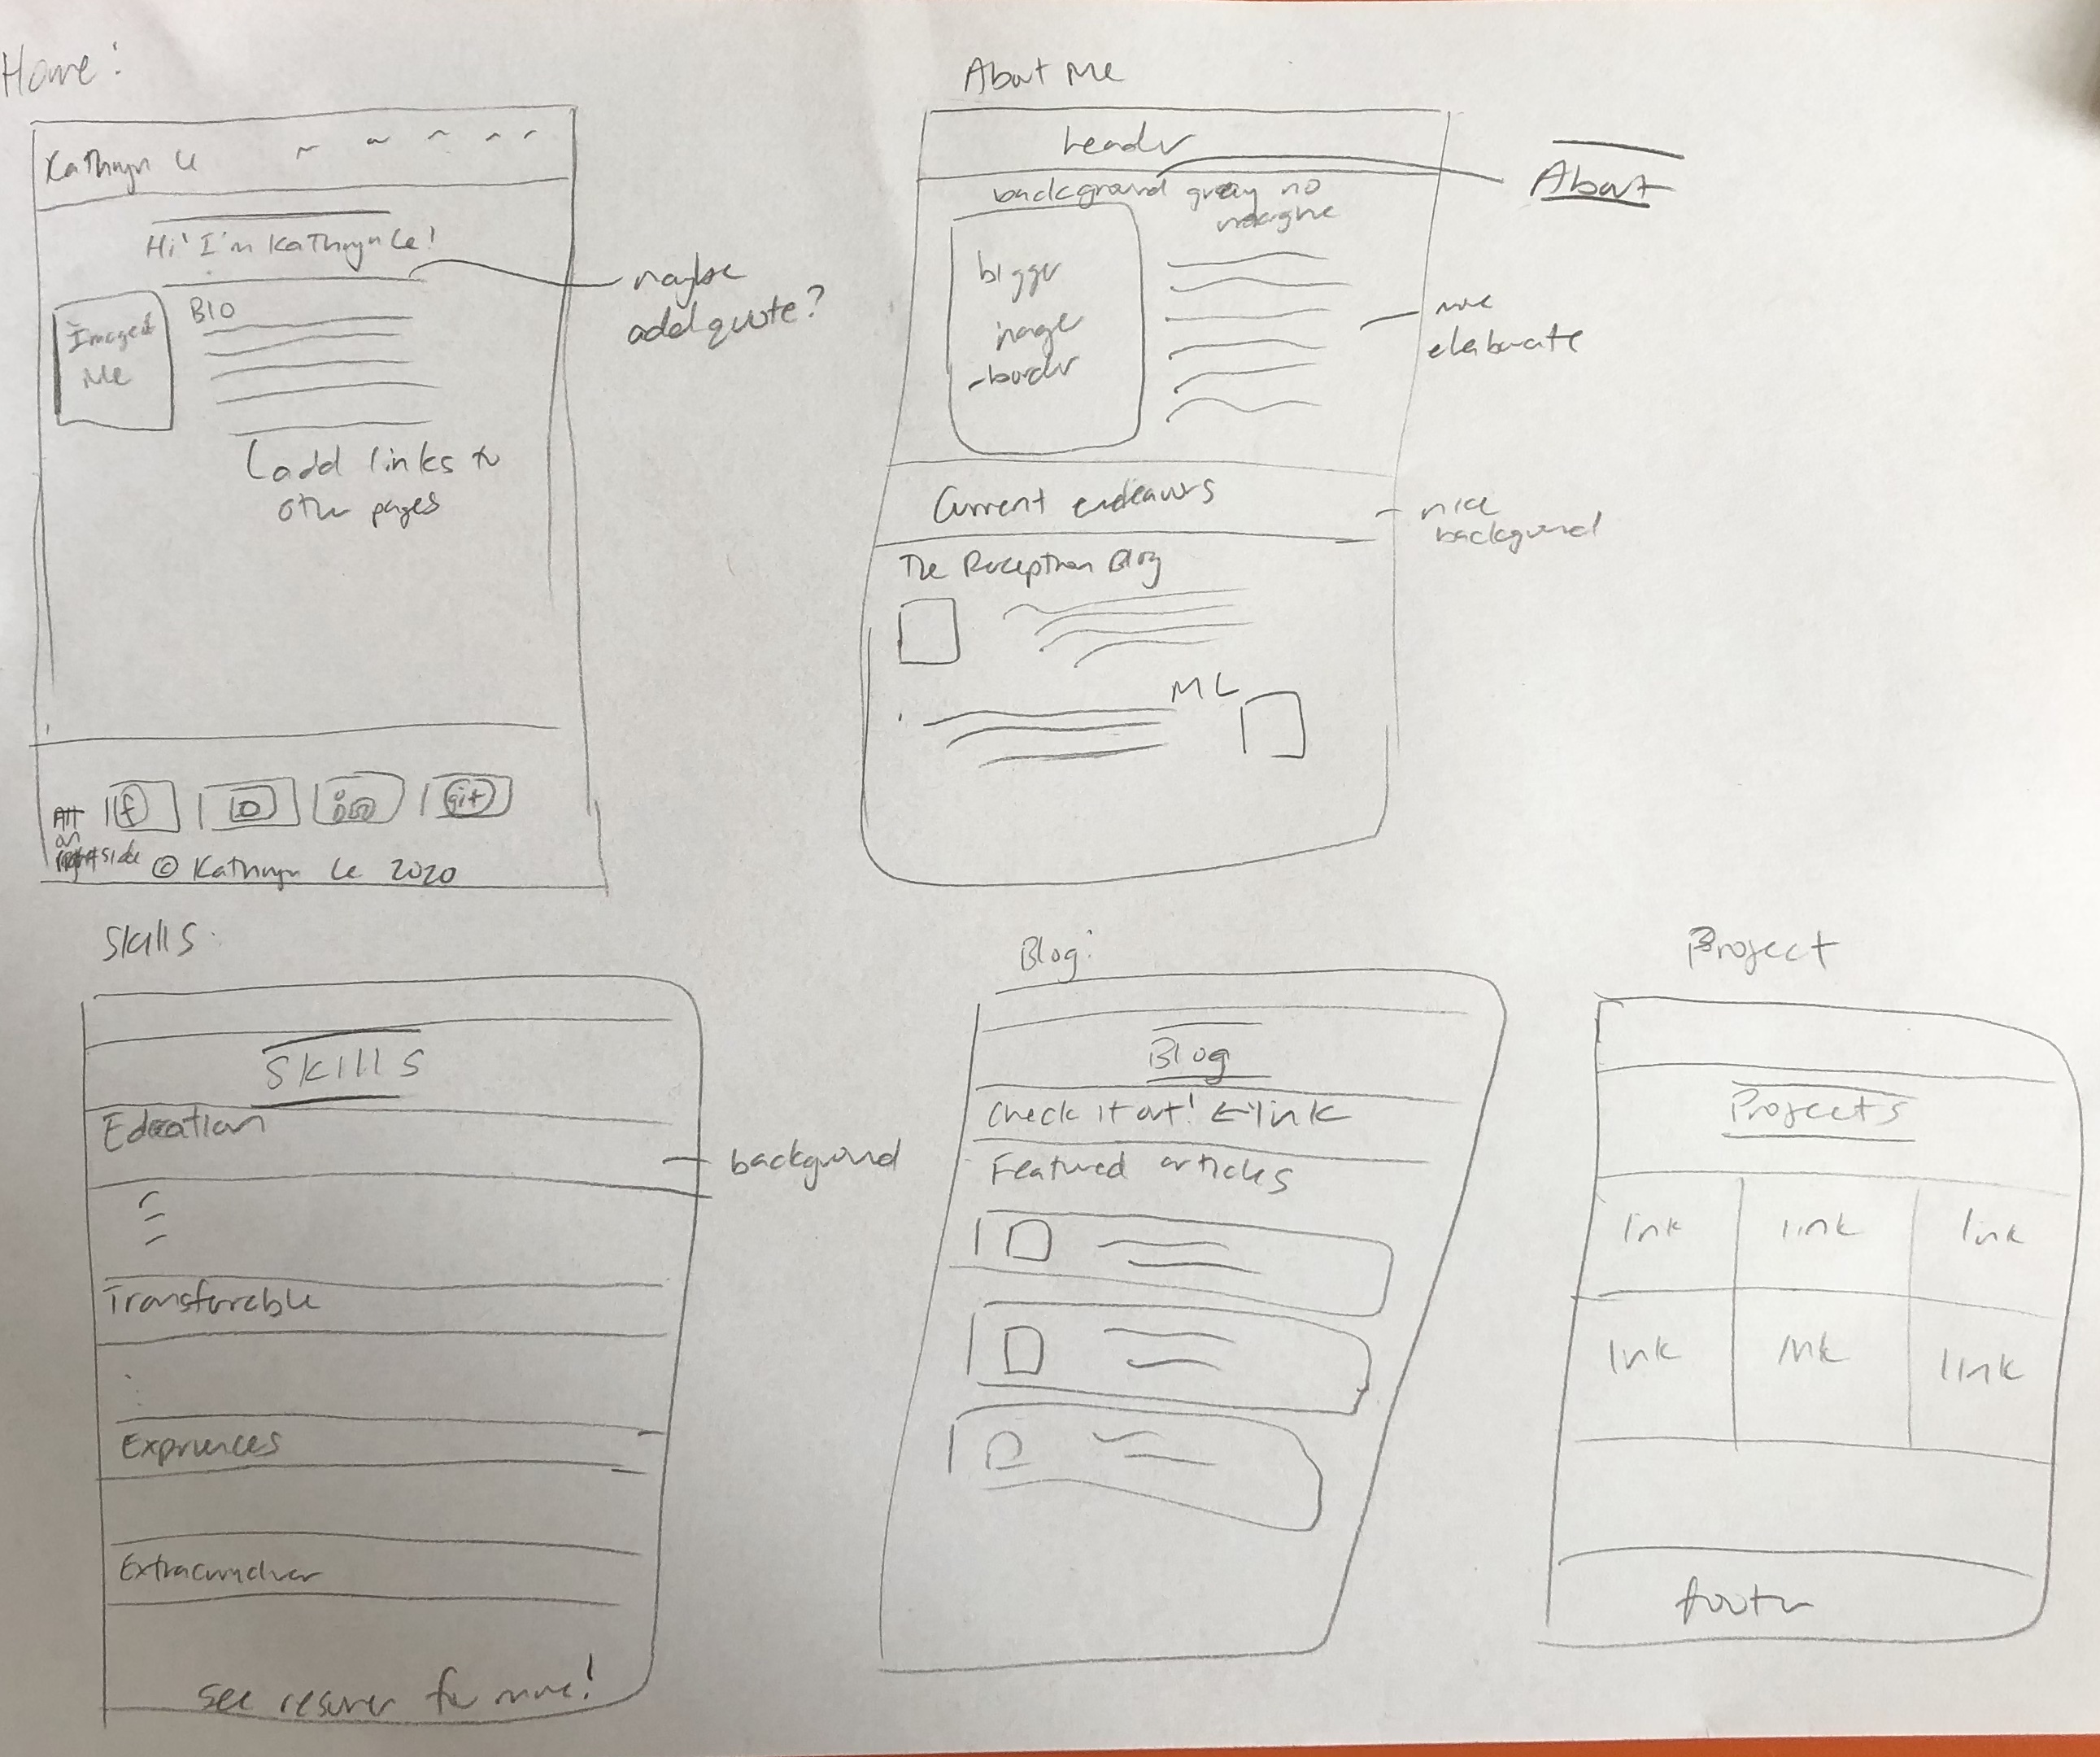 Home:
Kathryn Le
Hi! I'm Kathryn Le!
Image of
Me
BIO
maybe
add quote?
add links to
other pages
f
in
git
All
on
right side
© Kathryn Le 2020
About Me
header
background gray no
margine
About
bigger
image
-border
more
elaborate
Current endeavors
nice
background
The Perception Blog
ML
Skills:
Skills
Education
background
Transferable
Expriences
Extracurricular
see resumer for more!
Blog:
Blog
Check it out! ← link
Featured articles
Project
Projects
link link link
link link link
footer